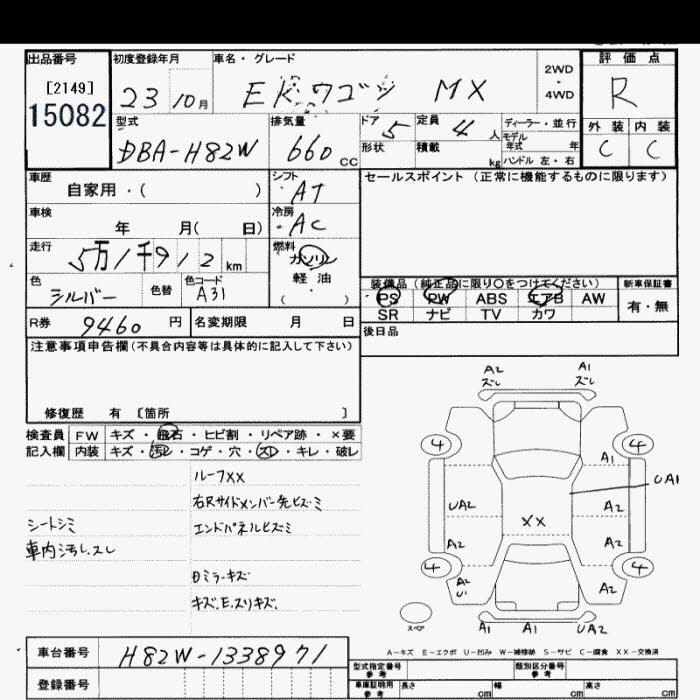 出品番号 初度登録年月 車名・グレード 評価点
[2149]
15082
23 10月
EKワゴン MX
2WD
・
4WD
R
型式 排気量 ドア 定員 ディーラー・並行 外装 内装
DBA-H82W 660 CC 5 4人 モデル年式 年 C C
形状 積載 kg ハンドル 左・右
車歴 シフト セールスポイント(正常に機能するものに限ります)
自家用・( ) ・AT
車検 冷房
年 月( 日) ・AC
走行 燃料
5万1千912 km ガソリン
色 色替 色コード 軽油
シルバー A31 ・( )
装備品(純正品に限り○をつけてください) 新車保証書
PS PW ABS エアB AW 有・無
SR ナビ TV カワ
R券 9460 円 名変期限 月 日
後日品
注意事項申告欄(不具合内容等は具体的に記入して下さい)
修復歴 有 〔箇所 〕
検査員 FW キズ・飛石・ヒビ割・リペア跡・×要
記入欄 内装 キズ・汚レ・コゲ・穴・スレ・キレ・破レ
ルーフXX
右Rサイドメンバー先ヒズミ
シートシミ エンドパネルヒズミ
車内汚レ.スレ
日ミラーキズ
キズ.E.スリキズ.
A2 A1
ズレ ズレ
4 4
A1
UA1
UA2 A2
XX
A2 A2
4 4
A2 A2
U1
スペア A1 A1 UA2
A-キズ E-エクボ U-凹み W-補修跡 S-サビ C-腐食 XX-交換済
車台番号 H82W-1338971
型式指定番号 参考 類別区分番号 参考
登録番号
車庫証明用 参考 長さ cm 幅 cm 高さ cm